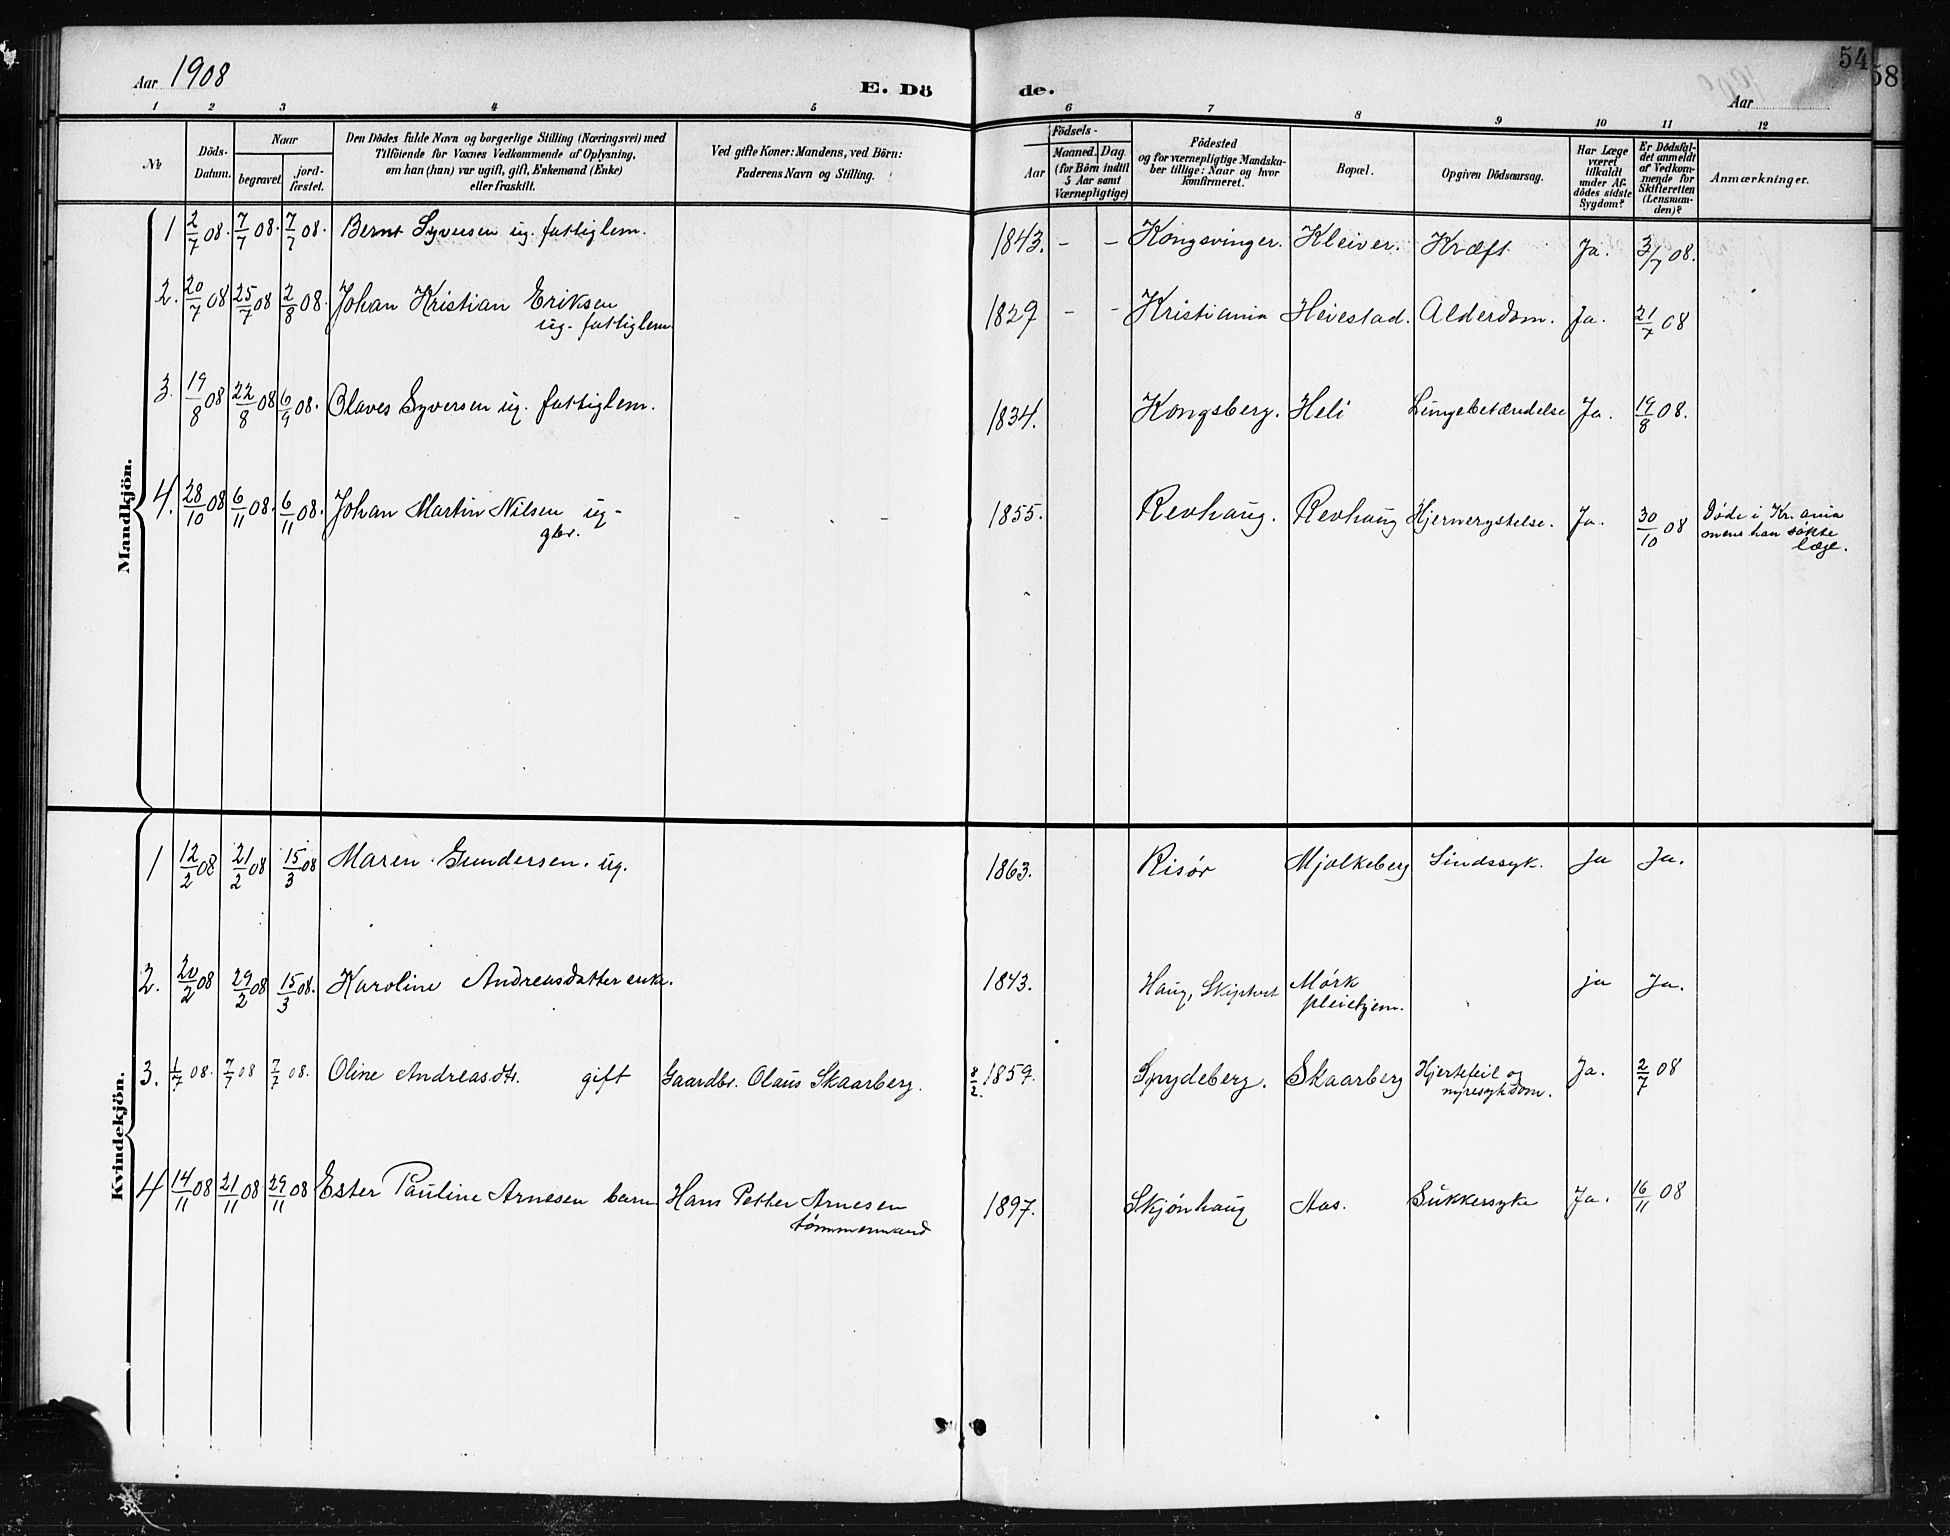 Aar 1908
E. Dö
de.
54
58
Aar
1 2 3 4 5 6 7 8 9 10 11 12
№
Döds-
Datum.
Naar
begravet.
jord-
fæstet.
Den Dödes fulde Navn og borgerlige Stilling (Næringsvei) med
Tilföiende for Voxnes Vedkommende af Oplysning,
om han (hun) var ugift, gift, Enkemand (Enke)
eller fraskilt.
Ved gifte Koner: Mandens, ved Börn:
Faderens Navn og Stilling.
Födsels-
Aar
Maaned. Dag.
(for Börn indtil
5 Aar samt
Værnepligtige)
Födested
og for værnepligtige Mandska-
ber tillige: Naar og hvor
konfirmeret.
Bopæl.
Opgiven Dödsaarsag.
Har Læge
været
tilkaldt
under Af-
dödes sidste
Sygdom?
Er Dödsfal-
det anmeldt
af Vedkom-
mende for
Skifteretten
(Lensman-
den)?
Anmærkninger.
Mandkjön.
1 2/7 08. 7/7 08. 7/7 08. Bernt Syversen ug. fattiglem. 1843. - - Kongsvinger. Kleiver. Kræft Ja. 3/7 08.
2. 20/7 08 25/7 08 2/8 08. Johan Kristian Eriksen 1829 - - Kristiania Heiestad. Alderdom. Ja. 21/7 08
ug. fattiglem
3. 19/8 08 22/8 08 6/9 08. Olaves Syversen ug. fattiglem. 1834. Kongsberg. Heli Lungebetændelse Ja. 19/8 08.
4. 28/10 08 6/11 08. 6/11 08. Johan Martin Nilsen ug - - - 1855. Revhaug. Revhaug Hjernerystelse. Ja. 30/10 08 Døde i Kr.ania
gbr. mens han søkte
læge.
Kvindekjön.
1 12/2 08 21/2 08 15/3 08 Maren Gundersen. ug. 1863. Risør Mjølkeberg Sindssyk. Ja Ja.
2. 20/2 08 29/2 08 15/3 08. Karoline Andreasdatter enke. 1843. Haug, Skiptvet Mørk ja Ja.
pleiehjem.
3. 1/7 08. 7/7 08 7/7 08. Oline Andreasdtr. gift Gaardbr. Olaus Skaarberg. 8/2. 1859. Spydeberg. Skaarberg Hjertefeil og Ja. 2/7 08
nyresykdom.
4 14/11 08 21/11 08 29/11 08 Ester Pauline Arnesen barn Hans Petter Arnesen 1897. Skjønhaug Aas. Sukkersyke Ja. 16/11 08
tømmermand